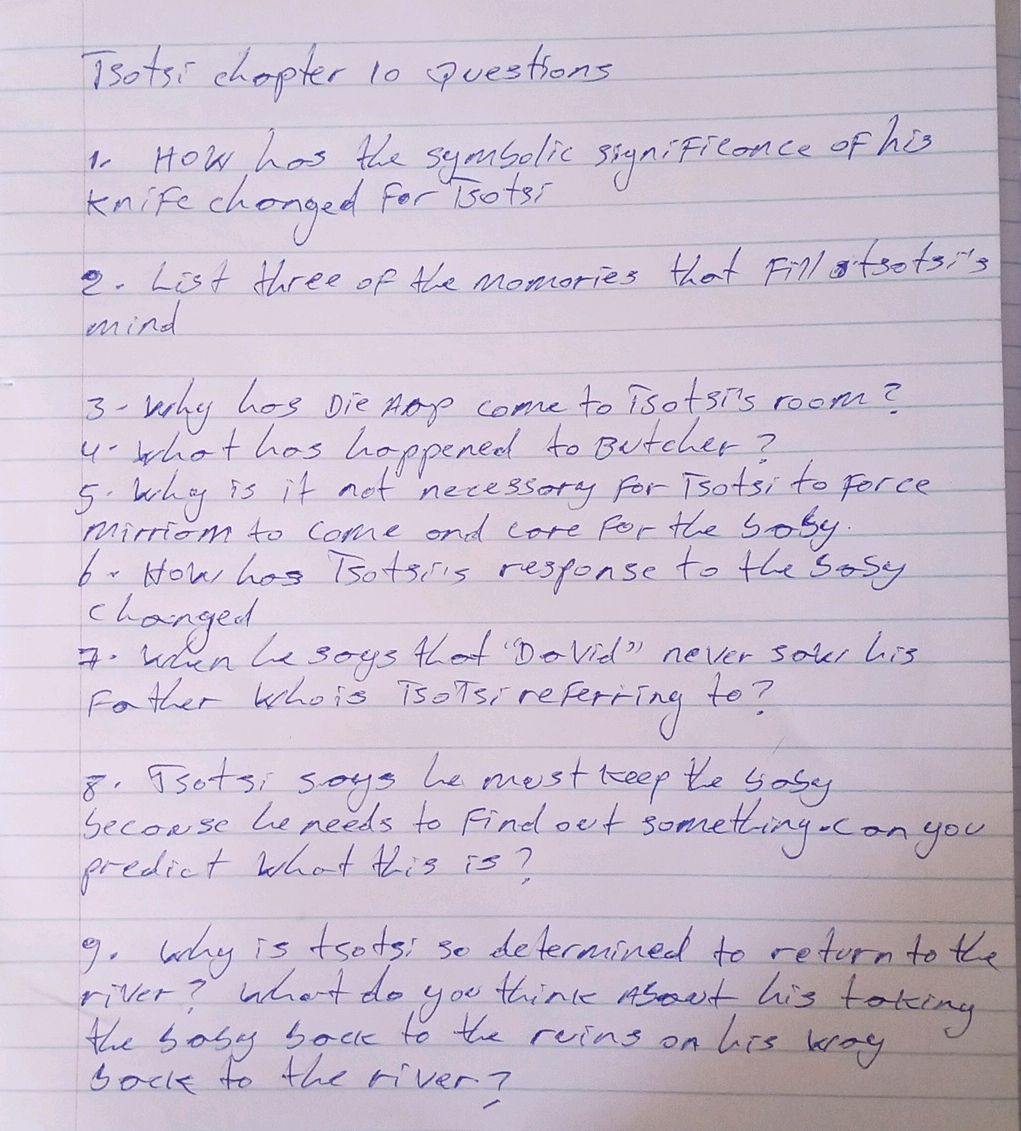 Tsotsi chapter 10 Questions
1. How has the symbolic significance of his
knife changed for Tsotsi
2. List three of the Momories that fill tsotsi's
mind
3- Why has Die Aap come to Tsotsi's room?
4- What has happened to Butcher?
5. Why is it not necessary for Tsotsi to force
Mirriam to come and care for the baby.
6. How has Tsotsi's response to the baby
changed
7. When he says that "David" never saw his
Father who is Tsotsi referring to?
8. Tsotsi says he must keep the baby
because he needs to find out something. Can you
predict what this is?
9. Why is tsotsi so determined to return to the
river? What do you think About his taking
the baby back to the ruins on his way
back to the river?